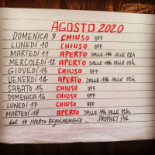 AGOSTO 2020
DOMENICA 9 CHIUSO OFF
LUNEDÌ 10 CHIUSO OFF
MARTEDÌ 11 APERTO DALLE
MERCOLEDÌ 12 APERTO DALLE
GIOVEDÌ 13 CHIUSO OFF
VENERDÌ 14 APERTO DALLE
SABATO 15 CHIUSO OFF
DOMENICA 16 CHIUSO OFF
LUNEDÌ 17 CHIUSO OFF
MARTEDÌ 18 APERTO DALLE
DAL 19 AGOSTO REGOLARMENTE PROPHET PUB